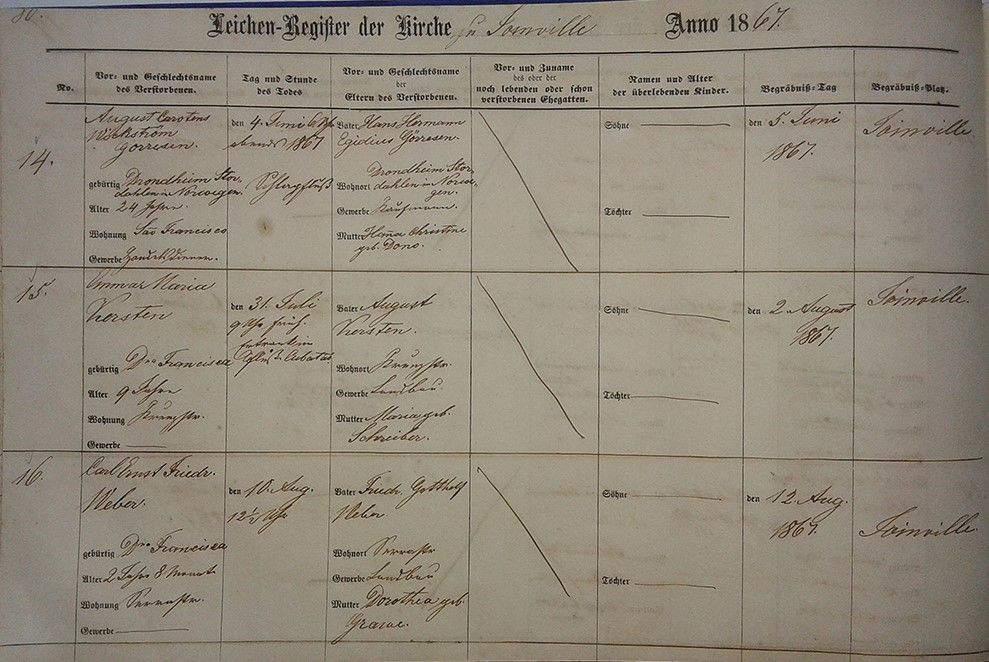 Leichen-Register der Kirche zu Joinville Anno 1867.
No.
Vor- und Geschlechtsname
des Verstorbenen.
Tag und Stunde
des Todes
Vor- und Geschlechtsname
der
Eltern des Verstorbenen.
Vor- und Zuname
des oder der
noch lebenden oder schon
verstorbenen Ehegatten.
Namen und Alter
der überlebenden Kinder.
Begräbniß-Tag
Begräbniß-Platz.
14.
August Carstens
Görresen.
gebürtig Drondheim Stor-
dahlen in Norwegen
Alter 24 Jahre.
Wohnung São Francisco
Gewerbe Handelsdiener.
den 4. Juni 6 Uhr
abends 1867
Vater Hans Hermann
Egidius Görresen.
Wohnort Drondheim Stor-
dahlen in Norwe-
gen.
Gewerbe Kaufmann.
Mutter Hanna Christine
geb. Dons.
Söhne
Töchter
den 5. Juni
1867.
Joinville
15.
Maria
Kersten
gebürtig Dna Francisca
Alter 9 Jahre
Wohnung Kreuzstr.
Gewerbe
den 31. Juli
9 Uhr früh.
ertrank im
Vater August
Kersten.
Wohnort Kreuzstr.
Gewerbe Landbau.
Mutter Maria geb.
Schreiber.
Söhne
Töchter
den 2. August
1867.
Joinville.
16.
Carl Ernst Friedr.
Weber.
gebürtig Dna Francisca
Alter 2 Jahr 8 Monat
Wohnung Serrastr.
Gewerbe
den 10. Aug.
12½ Uhr
Vater Friedr. Gotthelf
Weber
Wohnort Serrastr
Gewerbe Landbau
Mutter Dorothea geb.
Söhne
Töchter
den 12. Aug.
1867.
Joinville